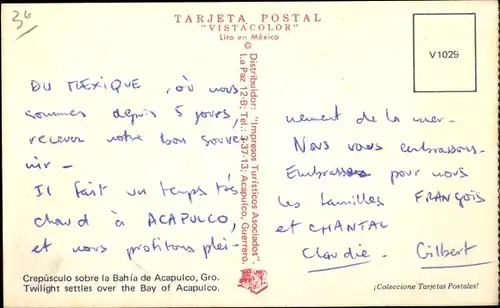 36
TARJETA POSTAL
"VISTACOLOR"
Lito en México
V1029
© Distribuidor: "Impresos Turísticos Asociados".
La Paz 12-8; Tel.: 3-37-13; Acapulco, Guerrero.
DU MEXIQUE, où nous
sommes depuis 5 jours,
recevez notre bon souve
nir -
Il fait un temps très
chaud à ACAPULCO,
et nous profitons plei-
nement de la mer -
Nous vous embrassons.
Embrassez pour nous
les familles FRANÇOIS
et CHANTAL
Claudie. Gilbert
Crepúsculo sobre la Bahía de Acapulco, Gro.
Twilight settles over the Bay of Acapulco.
¡Coleccione Tarjetas Postales!